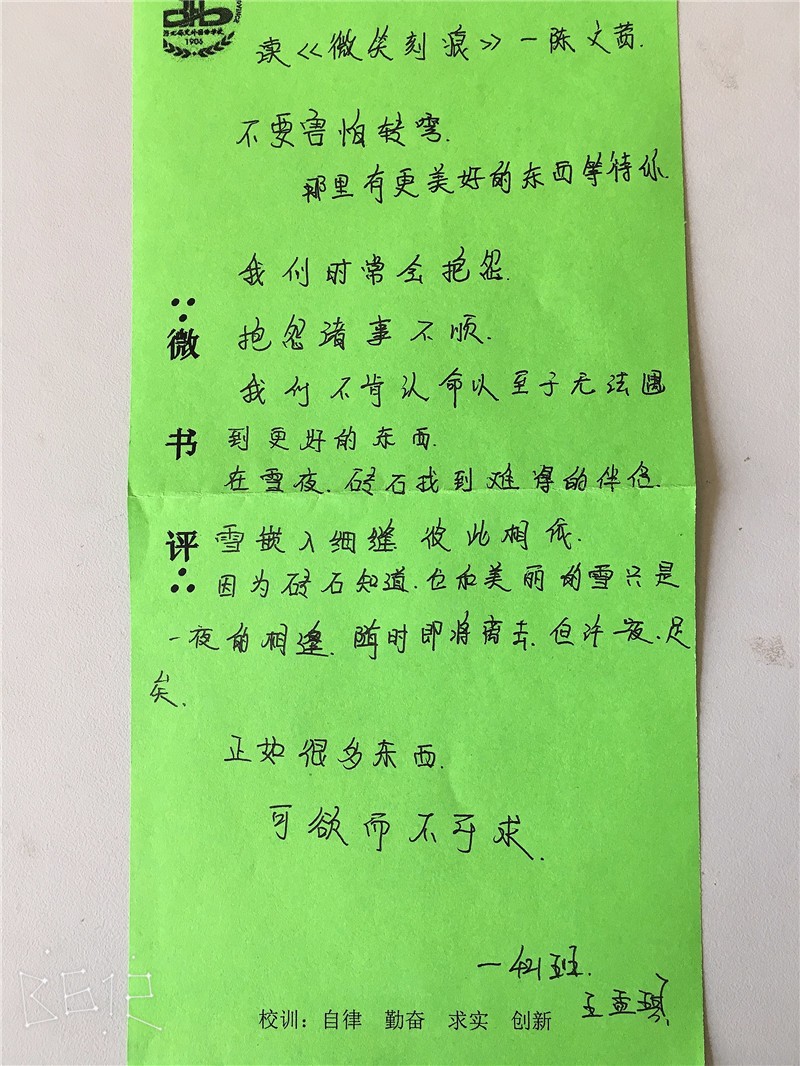 1906
读《微笑刻痕》一陈文茜.
不要害怕转弯.
那里有更美好的东西等待你
我们时常会抱怨.
抱怨诸事不顺.
我们不肯认命以至于无法遇
到更好的东西.
在雪夜.砖石找到难得的伴侣.
雪嵌入细缝 彼此相依.
因为砖石知道.它和美丽的雪只是
一夜的相逢.随时即将离去.但许一夜.足
矣.
正如很多东西.
可欲而不可求.
一421班.
王孟琪
微书评
校训：自律 勤奋 求实 创新
B612